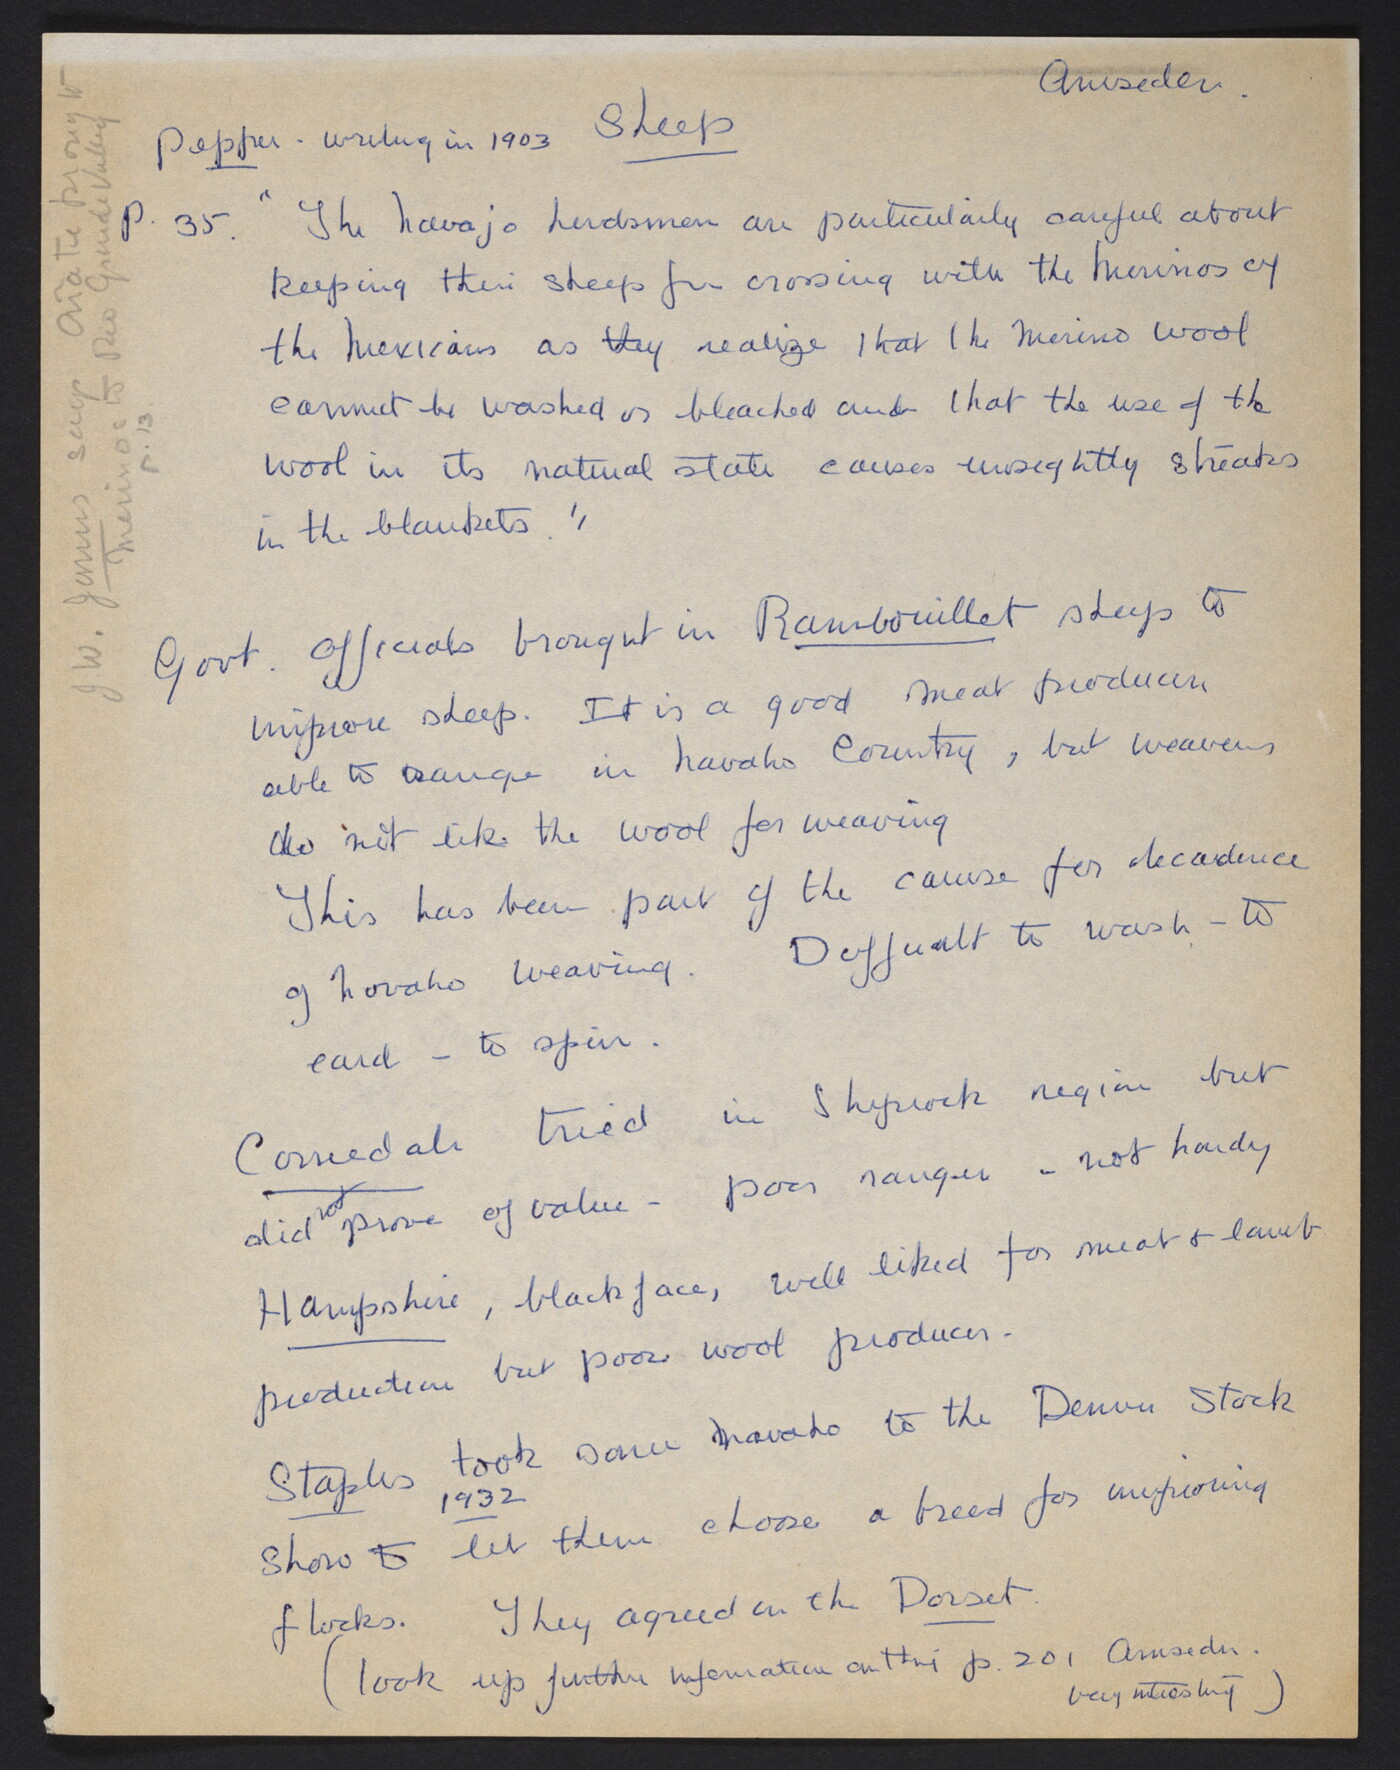 Amseden.
Pepper - writing in 1903 Sheep
p. 35. "The Navajo herdsmen are particularly careful about
keeping their sheep fr crossing with the Merinos of
the Mexicans as they realize that the Merino wool
cannot be washed or bleached and that the use of the
wool in its natural state causes unsightly streaks
in the blankets."
Govt. officials brought in Rambouillet sheep to
improve sheep. It is a good meat producer
able to range in Navaho Country, but weavers
do not like the wool for weaving
This has been part of the cause for decadence
of Navaho weaving. Difficult to wash - to
card - to spin.
Corriedale tried in Shiprock region but
did not prove of value - poor ranger - not hardy
Hampshire, blackface, well liked for meat & lamb
production but poor wool producer.
Staples took some Navaho to the Denver Stock
1932
Show to let them choose a breed for improving
flocks. They agreed on the Dorset.
(look up further information on this p. 201 Amseden.
very interesting)
J.W. James says Oñate brought
Merinos to Rio Grande Valley
p. 13